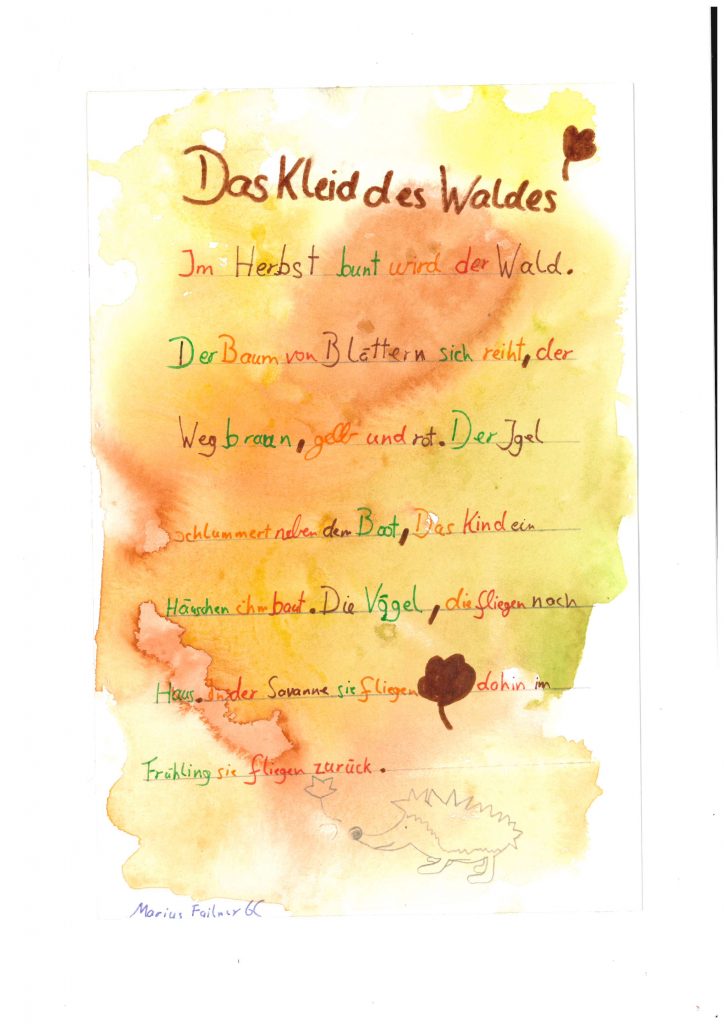 Das Kleid des Waldes
Im Herbst bunt wird der Wald.
Der Baum von Blättern sich reiht, der
Weg braun, gelb und rot. Der Igel
schlummert neben dem Boot, Das Kind ein
Häuschen ihm baut. Die Vögel, die fliegen nach
Haus. In der Savanne sie fliegen dahin im
Frühling sie fliegen zurück.
Marius Failner 6C